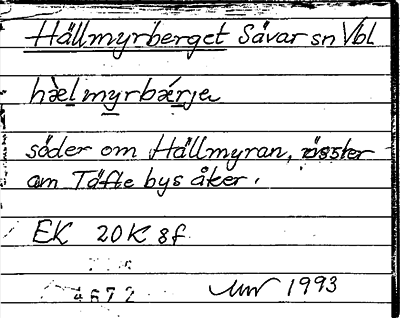 Hällmyrberget Sävar sn Vbl
hæl myrbærje
söder om Hällmyran, öster
om Täfte bys åker.
EK 20K 8f
4672 1993